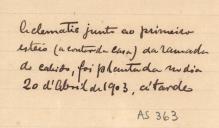 A clematis junto ao primeiro
esteio (a contar da casa) da ramada
do cabido, foi plantada no dia
20 d'Abril de 1903, á tarde
AS 363